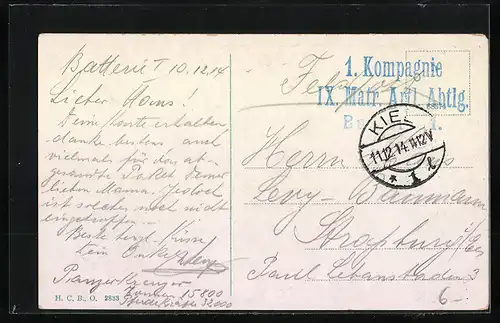 Batterie I 10.12.14
Lieber Hans!
Deine Karte erhalten
danke bestens auch
vielmals für das ab-
gesandte Paket Deiner
lieben Mama. Jedoch
ist solches noch nicht
eingetroffen.
Beste herzl. Küsse
Dein Onkel
Panzerkreuzer
Tonnen 15800
Pferdekräfte 32000
H. C. B. O. 2833
Feldpost
1. Kompagnie
IX. Matr. Artl. Abtlg.
KIEL
11.12.14.11-12V
* 1
Herrn
Levy-Baumann
Straßburg i/Els
6.-